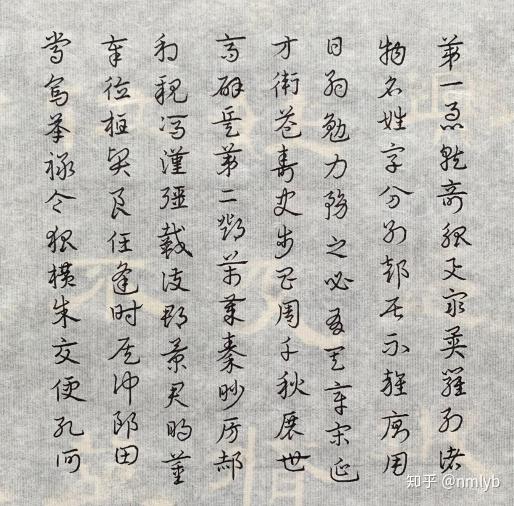 第一急就奇觚與衆異羅列諸
物名姓字分別部居不雜廁用
日約勉力務之必有其章宋延
年衛益壽史步昌周千秋展世
高辟兵第二鄧萬歲秦妙房郝
利親馮漢彊戴護郡景君明董
奉德桓賢良任逢時侯仲郎由
常烏承祿令狐橫朱交便孔何
知乎 @nmlyb